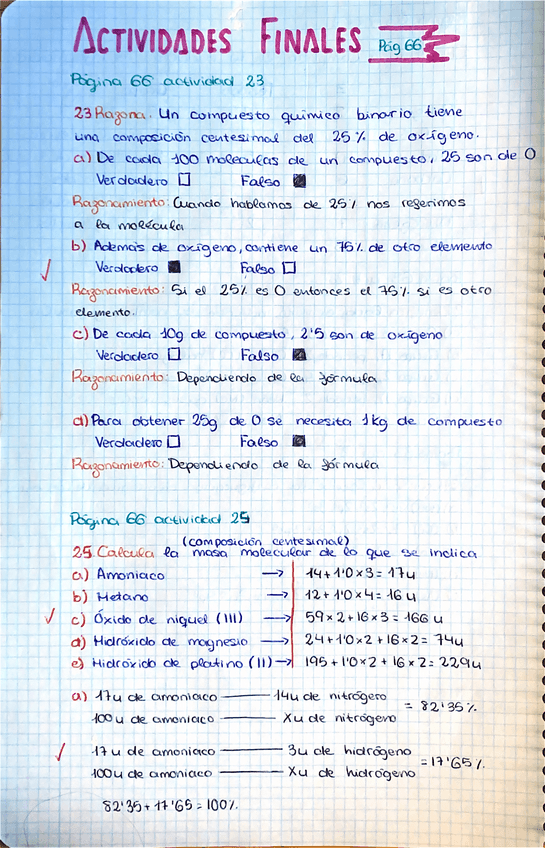 ACTIVIDADES FINALES Pág 66
Página 66 actividad 23
23 Razona. Un compuesto químico binario tiene
una composición centesimal del 25% de oxígeno.
a) De cada 100 moléculas de un compuesto, 25 son de O
Verdadero □ Falso ■
Razonamiento: Cuando hablamos de 25% nos referimos
a la molécula
b) Además de oxígeno, contiene un 75% de otro elemento
Verdadero ■ Falso □
Razonamiento: Si el 25% es O entonces el 75% si es otro
elemento.
c) De cada 10g de compuesto, 2'5 son de oxígeno
Verdadero □ Falso ■
Razonamiento: Dependiendo de la fórmula
d) Para obtener 25g de O se necesita 1kg de compuesto
Verdadero □ Falso ■
Razonamiento: Dependiendo de la fórmula
Página 66 actividad 25
(composición centesimal)
25. Calcula la masa molecular de lo que se indica
a) Amoniaco → 14+1'0×3= 17u
b) Metano → 12+1'0×4= 16u
c) Óxido de níquel (III) → 59×2+16×3= 166 u
d) Hidróxido de magnesio → 24+1'0×2+16×2= 74u
e) Hidróxido de platino (II) → 195+1'0×2+16×2= 229u
a) 17u de amoniaco —— 14u de nitrógeno
= 82'35%
100u de amoniaco —— Xu de nitrógeno
17u de amoniaco —— 3u de hidrógeno
=17'65%
100u de amoniaco —— Xu de hidrógeno
82'35+17'65=100%